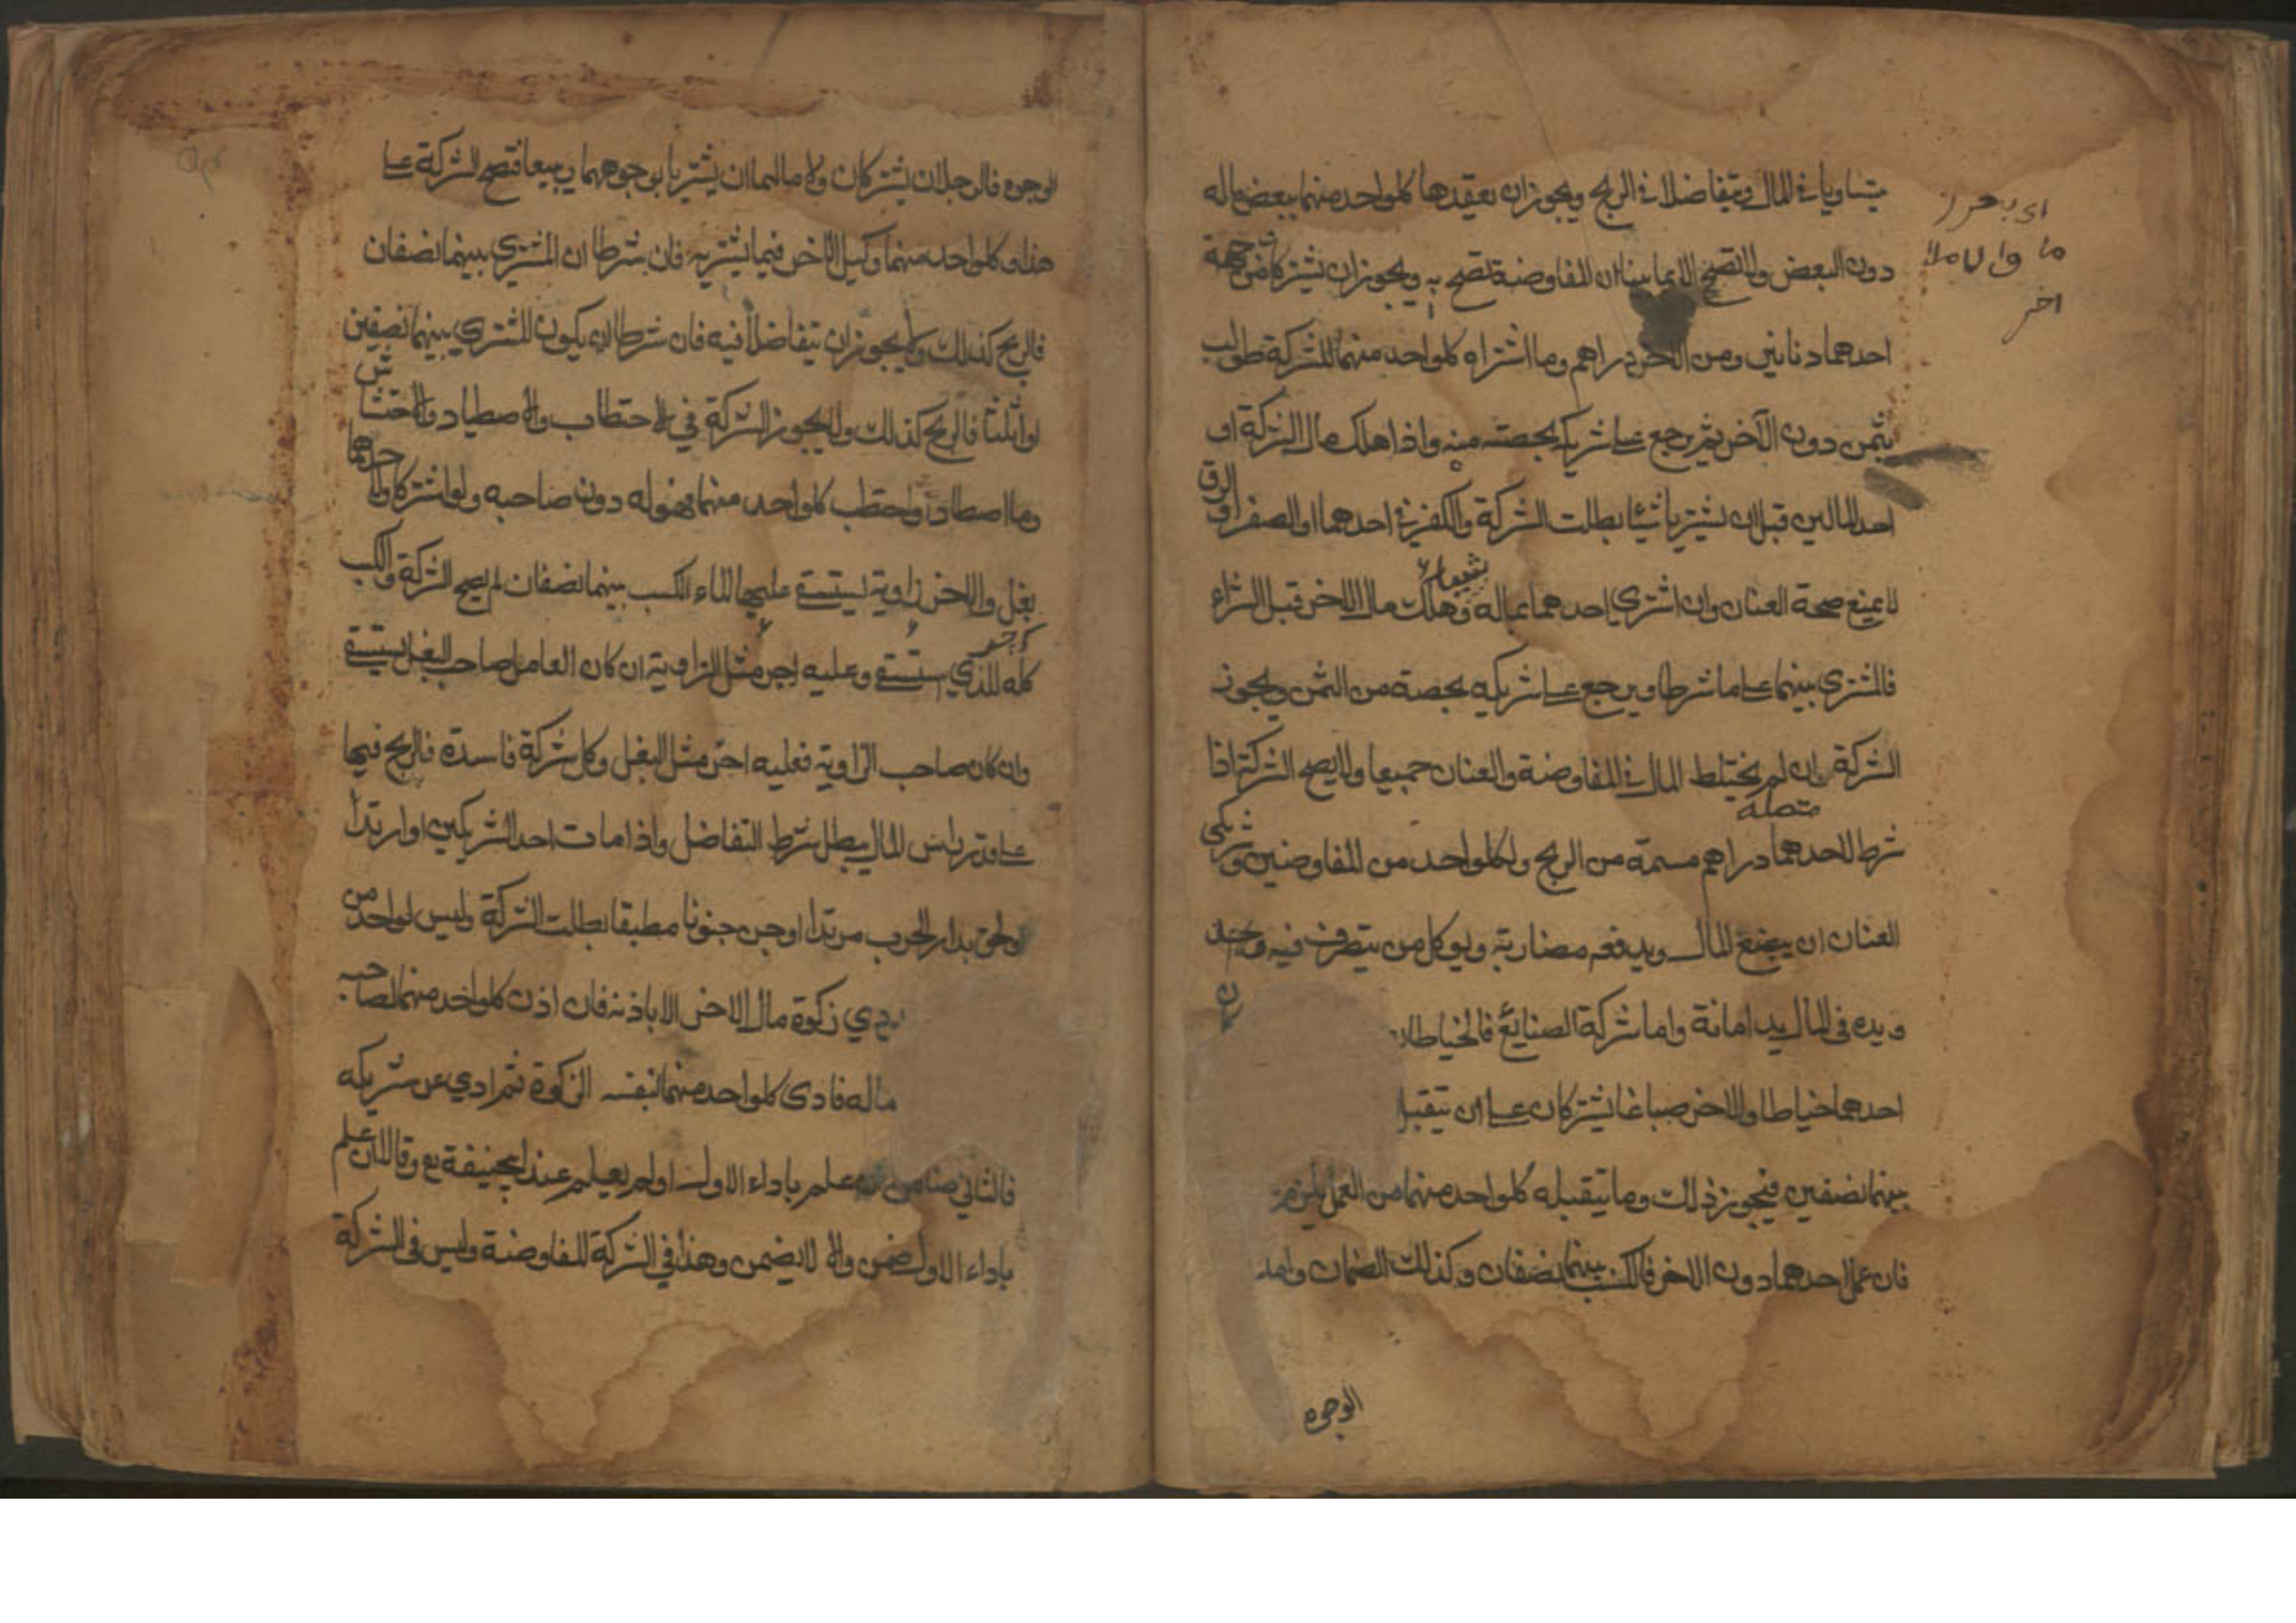 يتساويا في المال ويتفاضلا في الربح ويجوز ان يعقدها كلواحد منهما ببعض ماله
دون البعض ولا تصح الا بما بينا ان المفاوضة تصح به ويجوز ان يشتركا من جهة
احدهما دنانير ومن الآخر دراهم وما اشتراه كلواحد منهما للشركة طولب
بثمن دون الآخر ثم يرجع على شريكه بحصته منه واذا هلك مال الشركة او
احد المالين قبل ان يشتريا شيئا بطلت الشركة والكفر في احدهما او الصغر او الرق
لا يمنع صحة العنان وان اشترى احدهما بماله شيئا وهلك مال الاخر قبل الشراء
فالمشتري بينهما على ما شرطا ويرجع على شريكه بحصة من الثمن ويجوز
الشركة وان لم يختلط المال في المفاوضة والعنان جميعا ولا يصح الشركة اذا
شرط لاحدهما دراهم مسمة من الربح ولكلواحد من المفاوضين وشريكي
العنان ان يبضع المال ويدفعه مضاربة ويوكل من يتصرف فيه
ويده في المال يد امانة واما شركة الصنايع فالخياطان
احدهما خياط والاخر صباغا يشتركان على ان يتقبلا
بينهما نصفين فيجوز ذلك وما يتقبله كلواحد منهما من العمل يلزم
فان عمل احدهما دون الاخر فالكسب بينهما نصفان وكذلك الضمان واما
الوجوه
اخر
الوجوه فالرجلان يشتركان ولا مال لهما ان يشتريا بوجوههما ويبيعا فتصح الشركة على
هذا وكلواحد منهما وكيل الاخر فيما يشتريه فان شرطا ان المشتري بينهما نصفان
فالربح كذلك ولا يجوز ان يتفاضلا فيه فان شرطا ان يكون المشتري بينهما نصفين
او اثلاثا فالربح كذلك ولا يجوز الشركة في الاحتطاب والاصطياد والاحتشاش
وما اصطاده واحتطب كلواحد منهما فهو له دون صاحبه ولو اشتركا ولاحدهما
بغل والاخر راوية يستسقي عليها الماء الكسب بينهما نصفان لم يصح الشركة والكسب
كله للذي استسقى وعليه اجر مثل الراوية ان كان العامل صاحب البغل يستسقي
وان كان صاحب الراوية فعليه اجر مثل البغل وكل شركة فاسدة فالربح فيها
على قدر راس المال يبطل شرط التفاضل واذا مات احد الشريكين او ارتدا
ولحق بدار الحرب مرتدا او جن جنونا مطبقا بطلت الشركة وليس لواحد من
يؤدي زكوة مال الاخر الا باذنه فان اذن كلواحد منهما لصاحبه
ماله فادى كلواحد منهما بنفسه الزكوة ثم ادي عن شريكه
فالثاني ضامن علم باداء الاول او لم يعلم عند ابيحنيفة رح وقالا ان علم
باداء الاول ضمن والا لا يضمن وهذا في الشركة المفاوضة وليس في الشركة